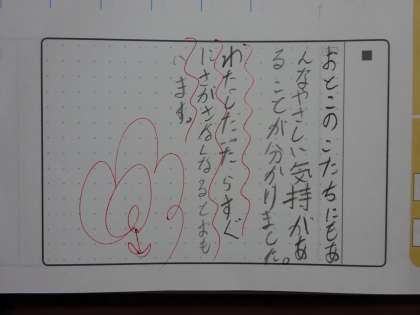 おとこのこたちにもあ
んなやさしい気持があ
ることが分かりました。
わたしだったらすぐ
にさがさなくなるとおも
います。